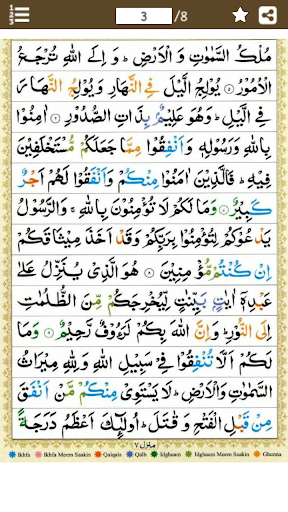 3 /8
مُلْكُ السَّمٰوٰتِ وَ الْاَرْضِ ؕ وَ اِلَى اللّٰهِ تُرْجَعُ
الْاُمُوْرُ ۝ يُوْلِجُ الَّيْلَ فِي النَّهَارِ وَ يُوْلِجُ النَّهَارَ
فِي الَّيْلِ ؕ وَهُوَ عَلِيْمٌۢ بِذَاتِ الصُّدُوْرِ ۝ اٰمِنُوْا
بِاللّٰهِ وَرَسُوْلِهٖ وَ اَنْفِقُوْا مِمَّا جَعَلَكُمْ مُّسْتَخْلَفِيْنَ
فِيْهِ ؕ فَالَّذِيْنَ اٰمَنُوْا مِنْكُمْ وَ اَنْفَقُوْا لَهُمْ اَجْرٌ
كَبِيْرٌ ۝ وَمَا لَكُمْ لَا تُؤْمِنُوْنَ بِاللّٰهِ ۚ وَالرَّسُوْلُ
يَدْعُوْكُمْ لِتُؤْمِنُوْا بِرَبِّكُمْ وَقَدْ اَخَذَ مِيْثَاقَكُمْ
اِنْ كُنْتُمْ مُّؤْمِنِيْنَ ۝ هُوَ الَّذِيْ يُنَزِّلُ عَلٰى
عَبْدِهٖۤ اٰيٰتٍۭ بَيِّنٰتٍ لِّيُخْرِجَكُمْ مِّنَ الظُّلُمٰتِ
اِلَى النُّوْرِ ؕ وَاِنَّ اللّٰهَ بِكُمْ لَرَءُوْفٌ رَّحِيْمٌ ۝ وَمَا
لَكُمْ اَلَّا تُنْفِقُوْا فِيْ سَبِيْلِ اللّٰهِ وَلِلّٰهِ مِيْرَاثُ
السَّمٰوٰتِ وَالْاَرْضِ ؕ لَا يَسْتَوِيْ مِنْكُمْ مَّنْ اَنْفَقَ
مِنْ قَبْلِ الْفَتْحِ وَ قٰتَلَ ؕ اُولٰٓئِكَ اَعْظَمُ دَرَجَةً
منزل ٧
Ikhfa Ikhfa Meem Saakin Qalqala Qalb Idghaam Idghaam Meem Saakin Ghunna